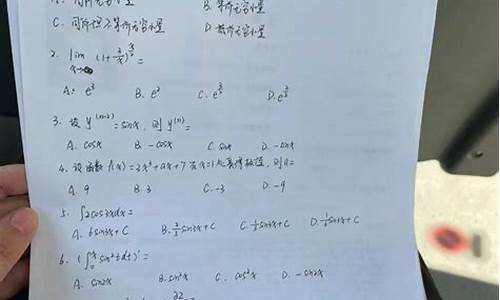 A. 同阶无穷小量 B. 等阶无穷小量
C. 同阶但不等阶无穷小量 D.
2. lim (1+ 2/x)^ =
x→∞
A. e³ B. e² C. e D. e
3. 设 y⁽ⁿ⁻²⁾ = sinx, 则 y⁽ⁿ⁾ =
A. cosx B. -cosx C. sinx D. -sinx
4. 设函数 f(x) = 2x³+ax+7 在 x=1 处取得极值, 则 a=
A. 9 B. 3 C. -3 D. -9
5. ∫2cos3xdx =
A. 6sin3x+C B. 2/3 sin3x+C C. 1/3 sin3x+C D. 1/6 sin3x+C
6. (∫₀ˣ sin²tdt)' =
A. sin2x B. sin²x C. cos²x D. -sin2x